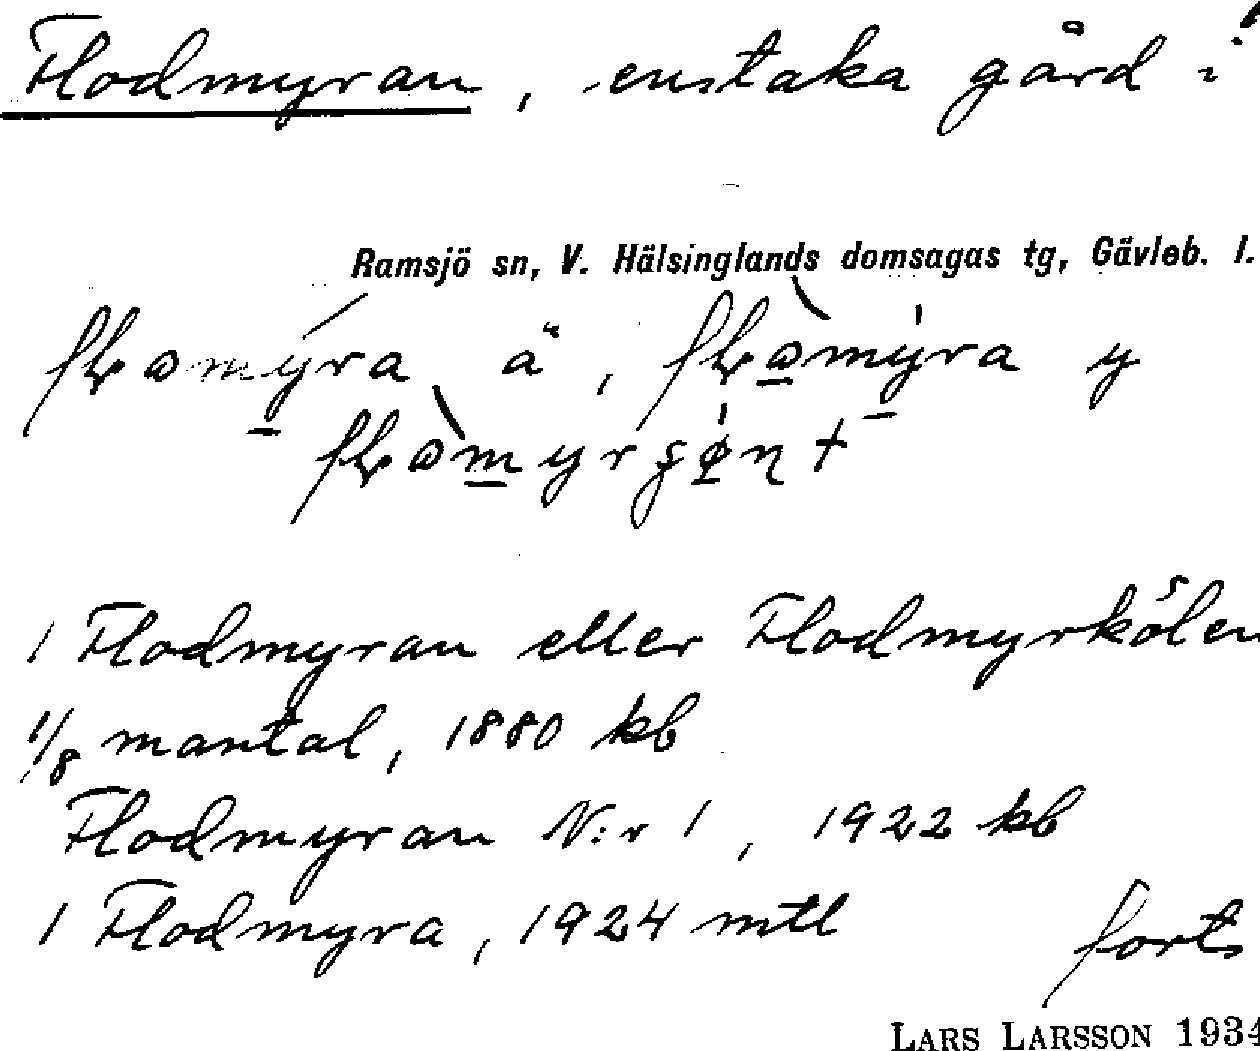 Flodmyran, enstaka gård i
Ramsjö sn, V. Hälsinglands domsagas tg, Gävleb. l.
ä, y
1 Flodmyran eller Flodmyrkölen
1/8 mantal, 1880 kb
Flodmyran N:r 1, 1922 kb
1 Flodmyra, 1924 mtl
forts
LARS LARSSON 1934